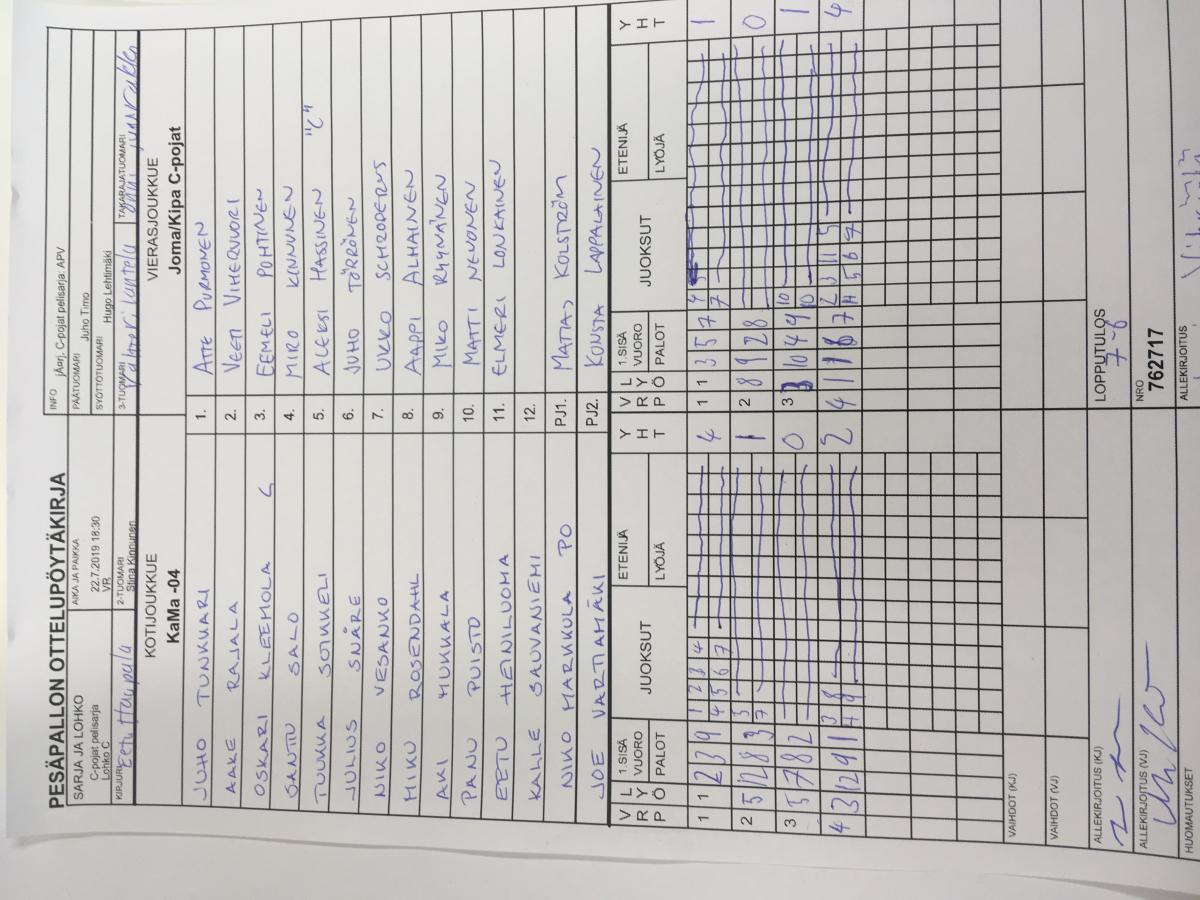 PESÄPALLON OTTELUPÖYTÄKIRJA
SARJA JA LOHKO
C-pojat pelisarja
Lohko C
AIKA JA PAIKKA
22.7.2019 18:30
VR
INFO jÄarj. C-pojat pelisarja: APV
PÄÄTUOMARI Juho Timo
SYÖTTÖTUOMARI Hugo Lehtimäki
KIRJURI Eetu Haapala
2-TUOMARI
Stina Kinnunen
3-TUOMARI
TAKARAJATUOMARI
KOTIJOUKKUE
KaMa -04
VIERASJOUKKUE
Joma/Kipa C-pojat
JUHO TUNKKARI 1. ATTE PURMONEN
AAKE RAJALA 2. VEETI VIHERVUORI
OSKARI KLEEMOLA C 3. EEMELI POHTINEN
SANTTU SALO 4. MIRO KINNUNEN
TUUKKA SOIKKELI 5. ALEKSI HASSINEN "C"
JULIUS SNÅRE 6. JUHO TÖRRÖNEN
NIKO VESANKO 7. UKKO SCHRODERUS
MIKU ROSENDAHL 8. AAPPI ALHAINEN
AKI HUKKALA 9. MIKO RYYNÄNEN
PANU PUISTO 10. MATTI NEVONEN
EETU HEINILUOMA 11. ELMERI LONKAINEN
KALLE SAUVANIEMI 12.
NIKO MARKKULA PO PJ1.
JOE VARTIAMÄKI PJ2. KONSTA LAPPALAINEN
V R P
L Y Ö
1.SISÄ VUORO
PALOT
JUOKSUT
ETENIJÄ
LYÖJÄ
Y H T
V R P
L Y Ö
1.SISÄ VUORO
PALOT
JUOKSUT
ETENIJÄ
LYÖJÄ
Y H T
1 1 2 3 9 1 2 3 4 4
4 5 6 7
1 1 3 5 7 1
2 5 12 8 3 1
2 8 9 2 8 0
3 5 7 8 2 0
3 10 4 9 1
4 3 12 9 1 2
4 4
VAIHDOT (KJ)
VAIHDOT (VJ)
ALLEKIRJOITUS (KJ)
LOPPUTULOS
7-6
ALLEKIRJOITUS (VJ)
NRO
762717
HUOMAUTUKSET
ALLEKIRJOITUS